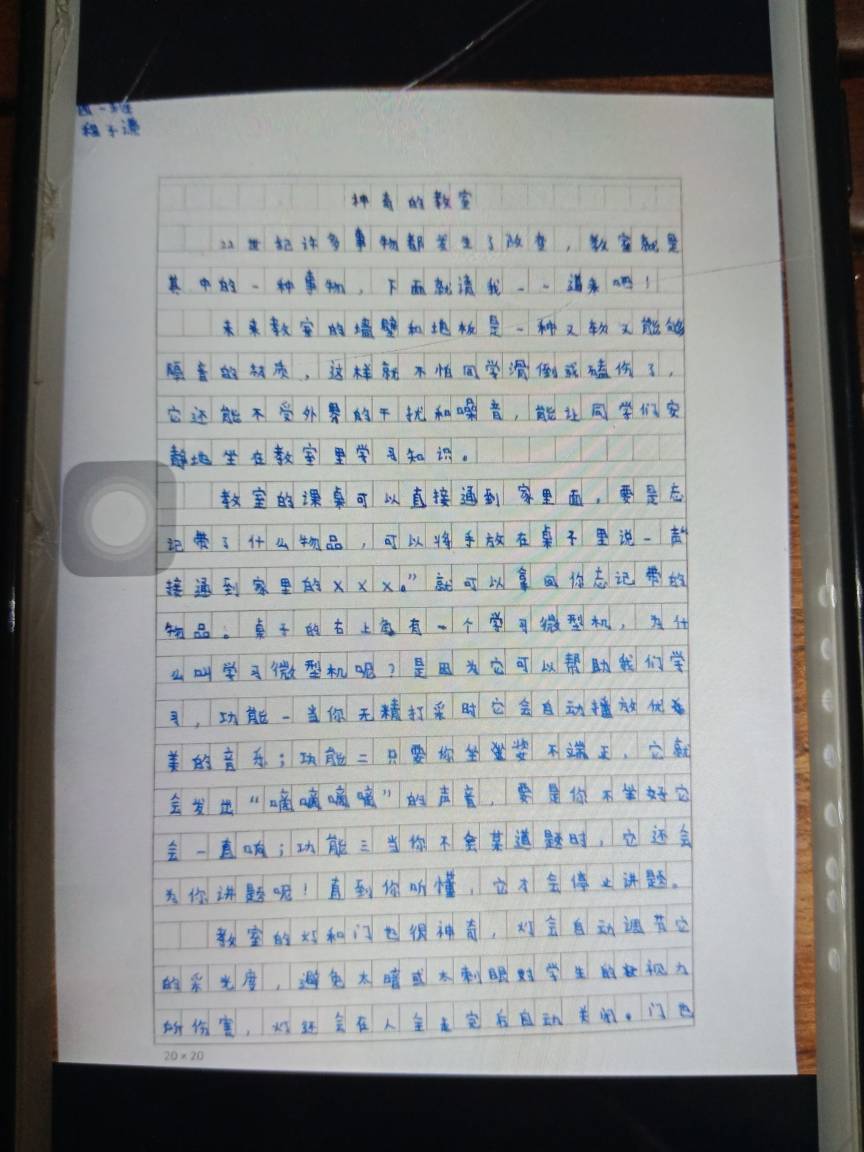 四一班
程子谦
神奇的教室
22世纪许多事物都发生了改变，教室就是
其中的一种事物，下面就请我一一道来吧！
未来教室的墙壁和地板是一种又软又能够
隔音的材质，这样就不怕同学滑倒或磕伤了，
它还能不受外界的干扰和噪音，能让同学们安
静地坐在教室里学习知识。
教室的课桌可以直接通到家里面，要是忘
记带了什么物品，可以将手放在桌子里说一声
接通到家里的XXX。”就可以拿回你忘记带的
物品。桌子的右上角有一个学习微型机，为什
么叫学习微型机呢？是因为它可以帮助我们学
习，功能一当你无精打采时它会自动播放优
美的音乐；功能二只要你坐姿不端正，它就
会发出“嘀嘀嘀嘀”的声音，要是你不坐好它
会一直响；功能三当你不会某道题时，它还会
为你讲题呢！直到你听懂，它才会停止讲题。
教室的灯和门也很神奇，灯会自动调节它
的采光度，避免太暗或太刺眼对学生的视力
所伤害，灯还会在人全走完后自动关闭。门也
20×20